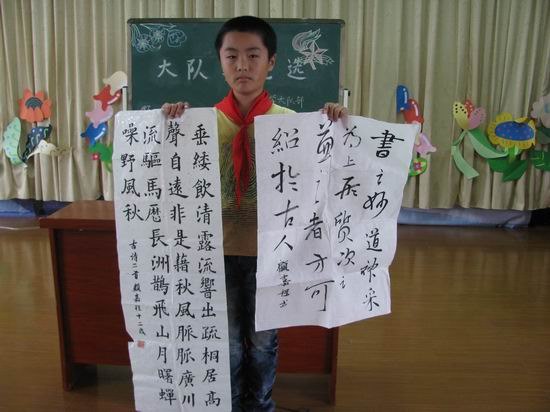 大队
选
大队部
垂緌飲清露流響出疏桐居高
聲自遠非是藉秋風脈脈廣川
流驅馬歷長洲鵲飛山月曙蟬
噪野風秋
古诗二首 顧嘉程十二歲
書之妙道神采
为上形質次之
兼之者方可
紹於古人 顧嘉程书